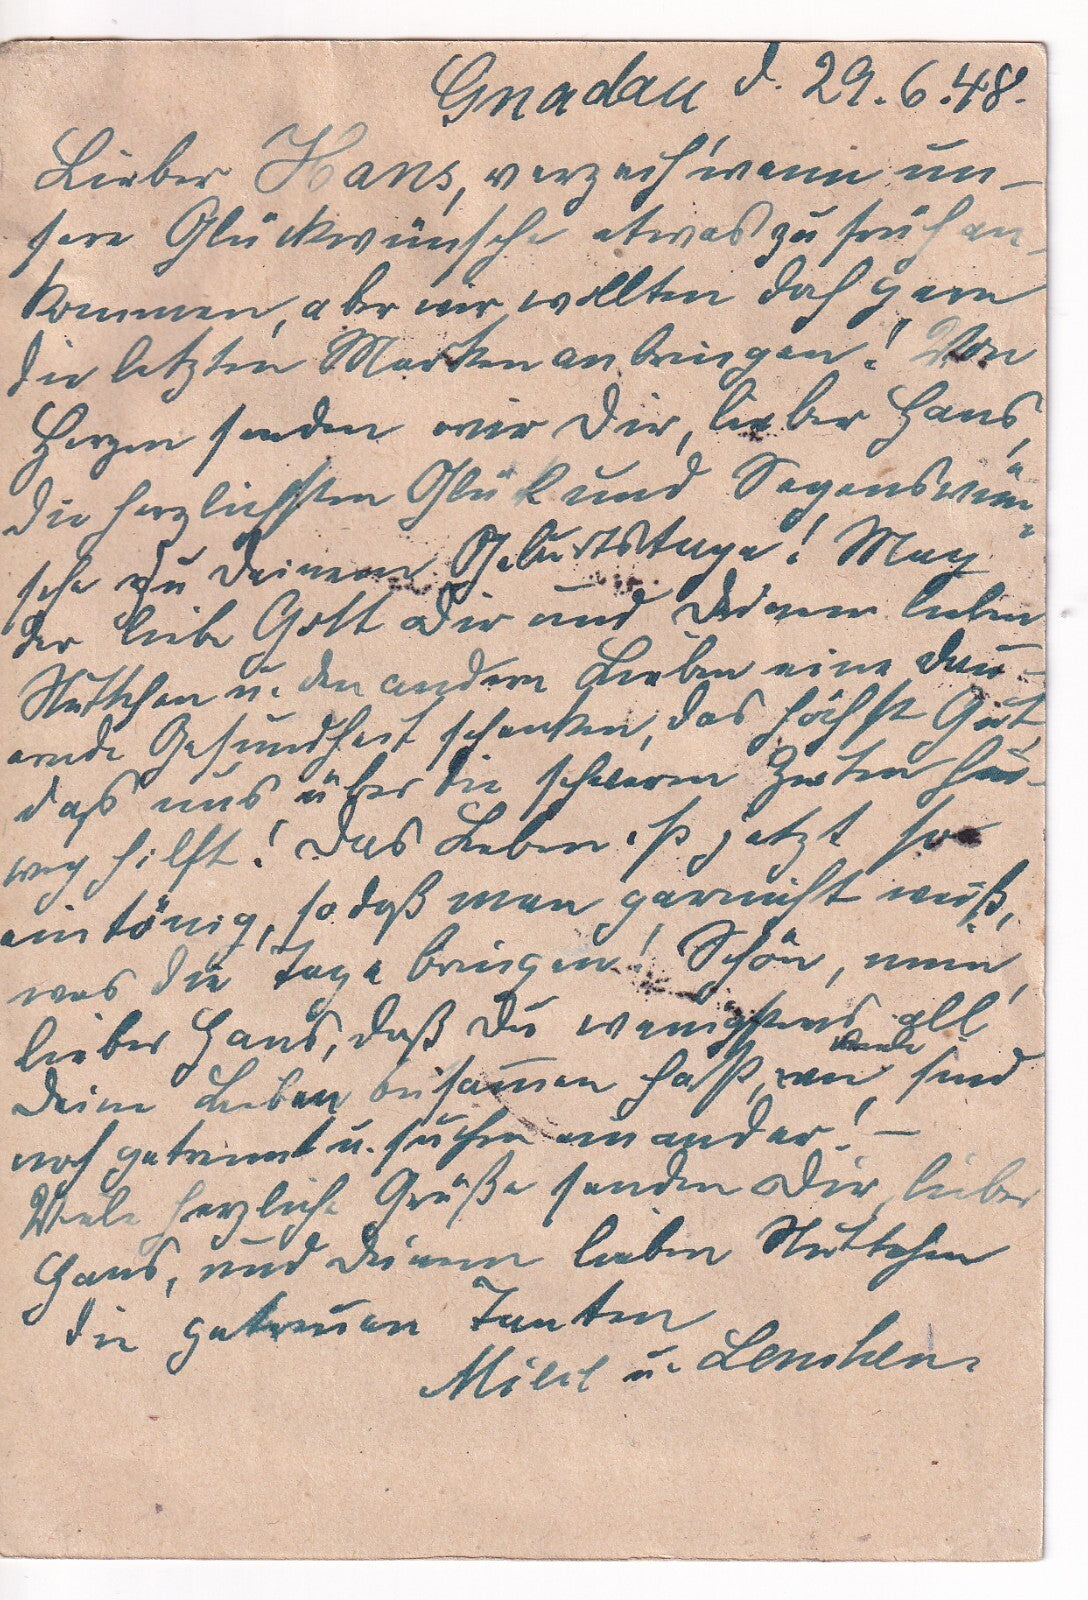 Gnadau d. 29.6.48.
Lieber Hans, verzeih' wenn un-
sere Glückwünsche etwas zu früh an-
kommen, aber wir wollten doch gern
die letzten Marken anbringen! Von
Herzen senden wir Dir, lieber Hans,
die herzlichsten Glück und Segenswün-
sche zu Deinem Geburtstage! Mag
der liebe Gott Dir und Deinem lieben
Muttchen u. den andern Lieben eine dau-
ernde Gesundheit schenken, das höchste Gut,
daß uns über die schweren Zeiten hin-
weg hilft! Das Leben ist jetzt so
eintönig, sodaß man garnicht weiß,
was die Tage bringen! Schön, mein
lieber Hans, daß Du wenigstens all
Deine Lieben beisammen hast, sind
noch getrennt u. suchen einander! —
Viele herzliche Grüße senden Dir, lieber
Hans, und Deinem lieben Muttchen
die getreuen Tanten
u. Lenchen.